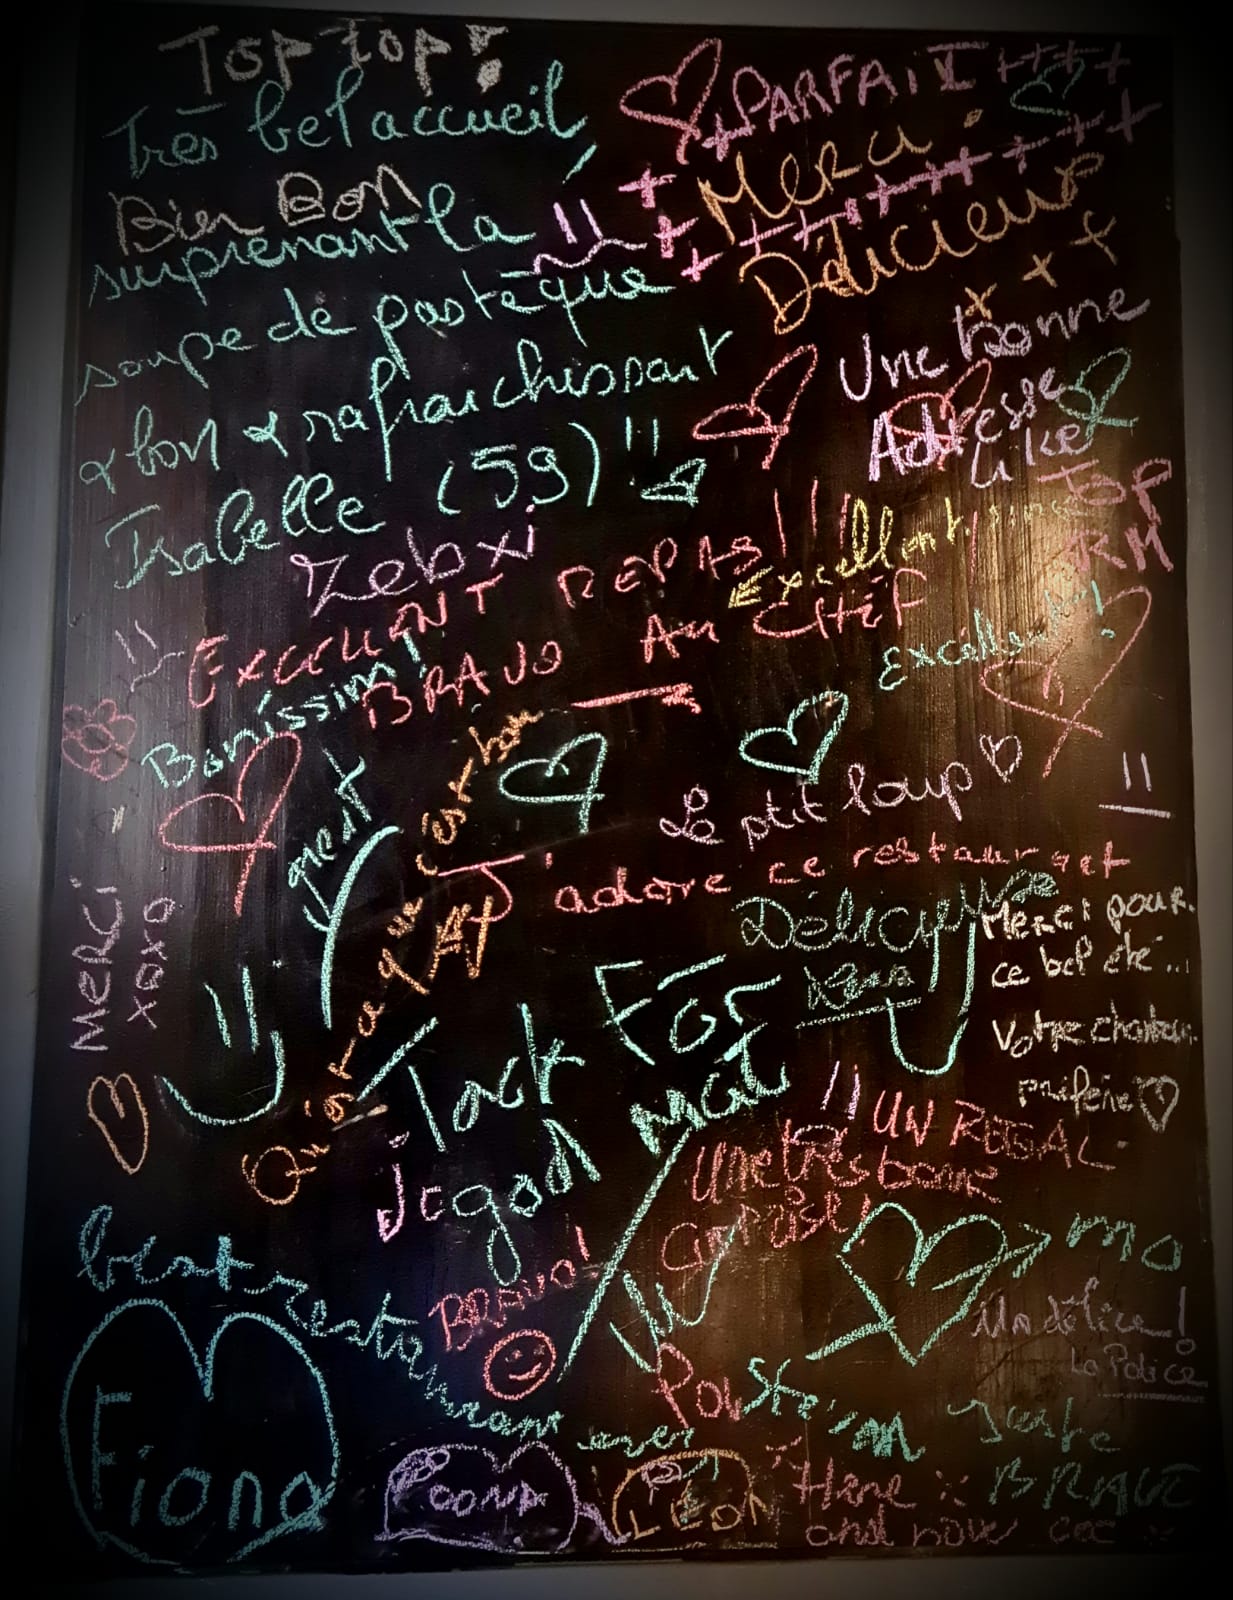 Top top!
Très bel accueil,
Bien Bon
surprenant la
soupe de pastèque
& bon & rafraichissant
Isabelle (59) !!
PARFAIT ++++
Merci
Délicieux
Une bonne
Adresse
Like
TOP
RM
Excellent
EXCELLENT REPAS!!!
BRAVO AU CHEF
Excellent!
Boníssim!
Le ptit loup
J'adore ce restaurant
Délicieuse
Merci pour
ce bel été...
Votre chanteur
préféré
MERCI
xoxo
Qu'on
c'est bon
Tack För
Mat
Jegon
UN REGAL
Une très bonne
BRAVO!
best restaurant ever
Un délice!
La Police
Fiona
LÉON
Juste
Here
and now